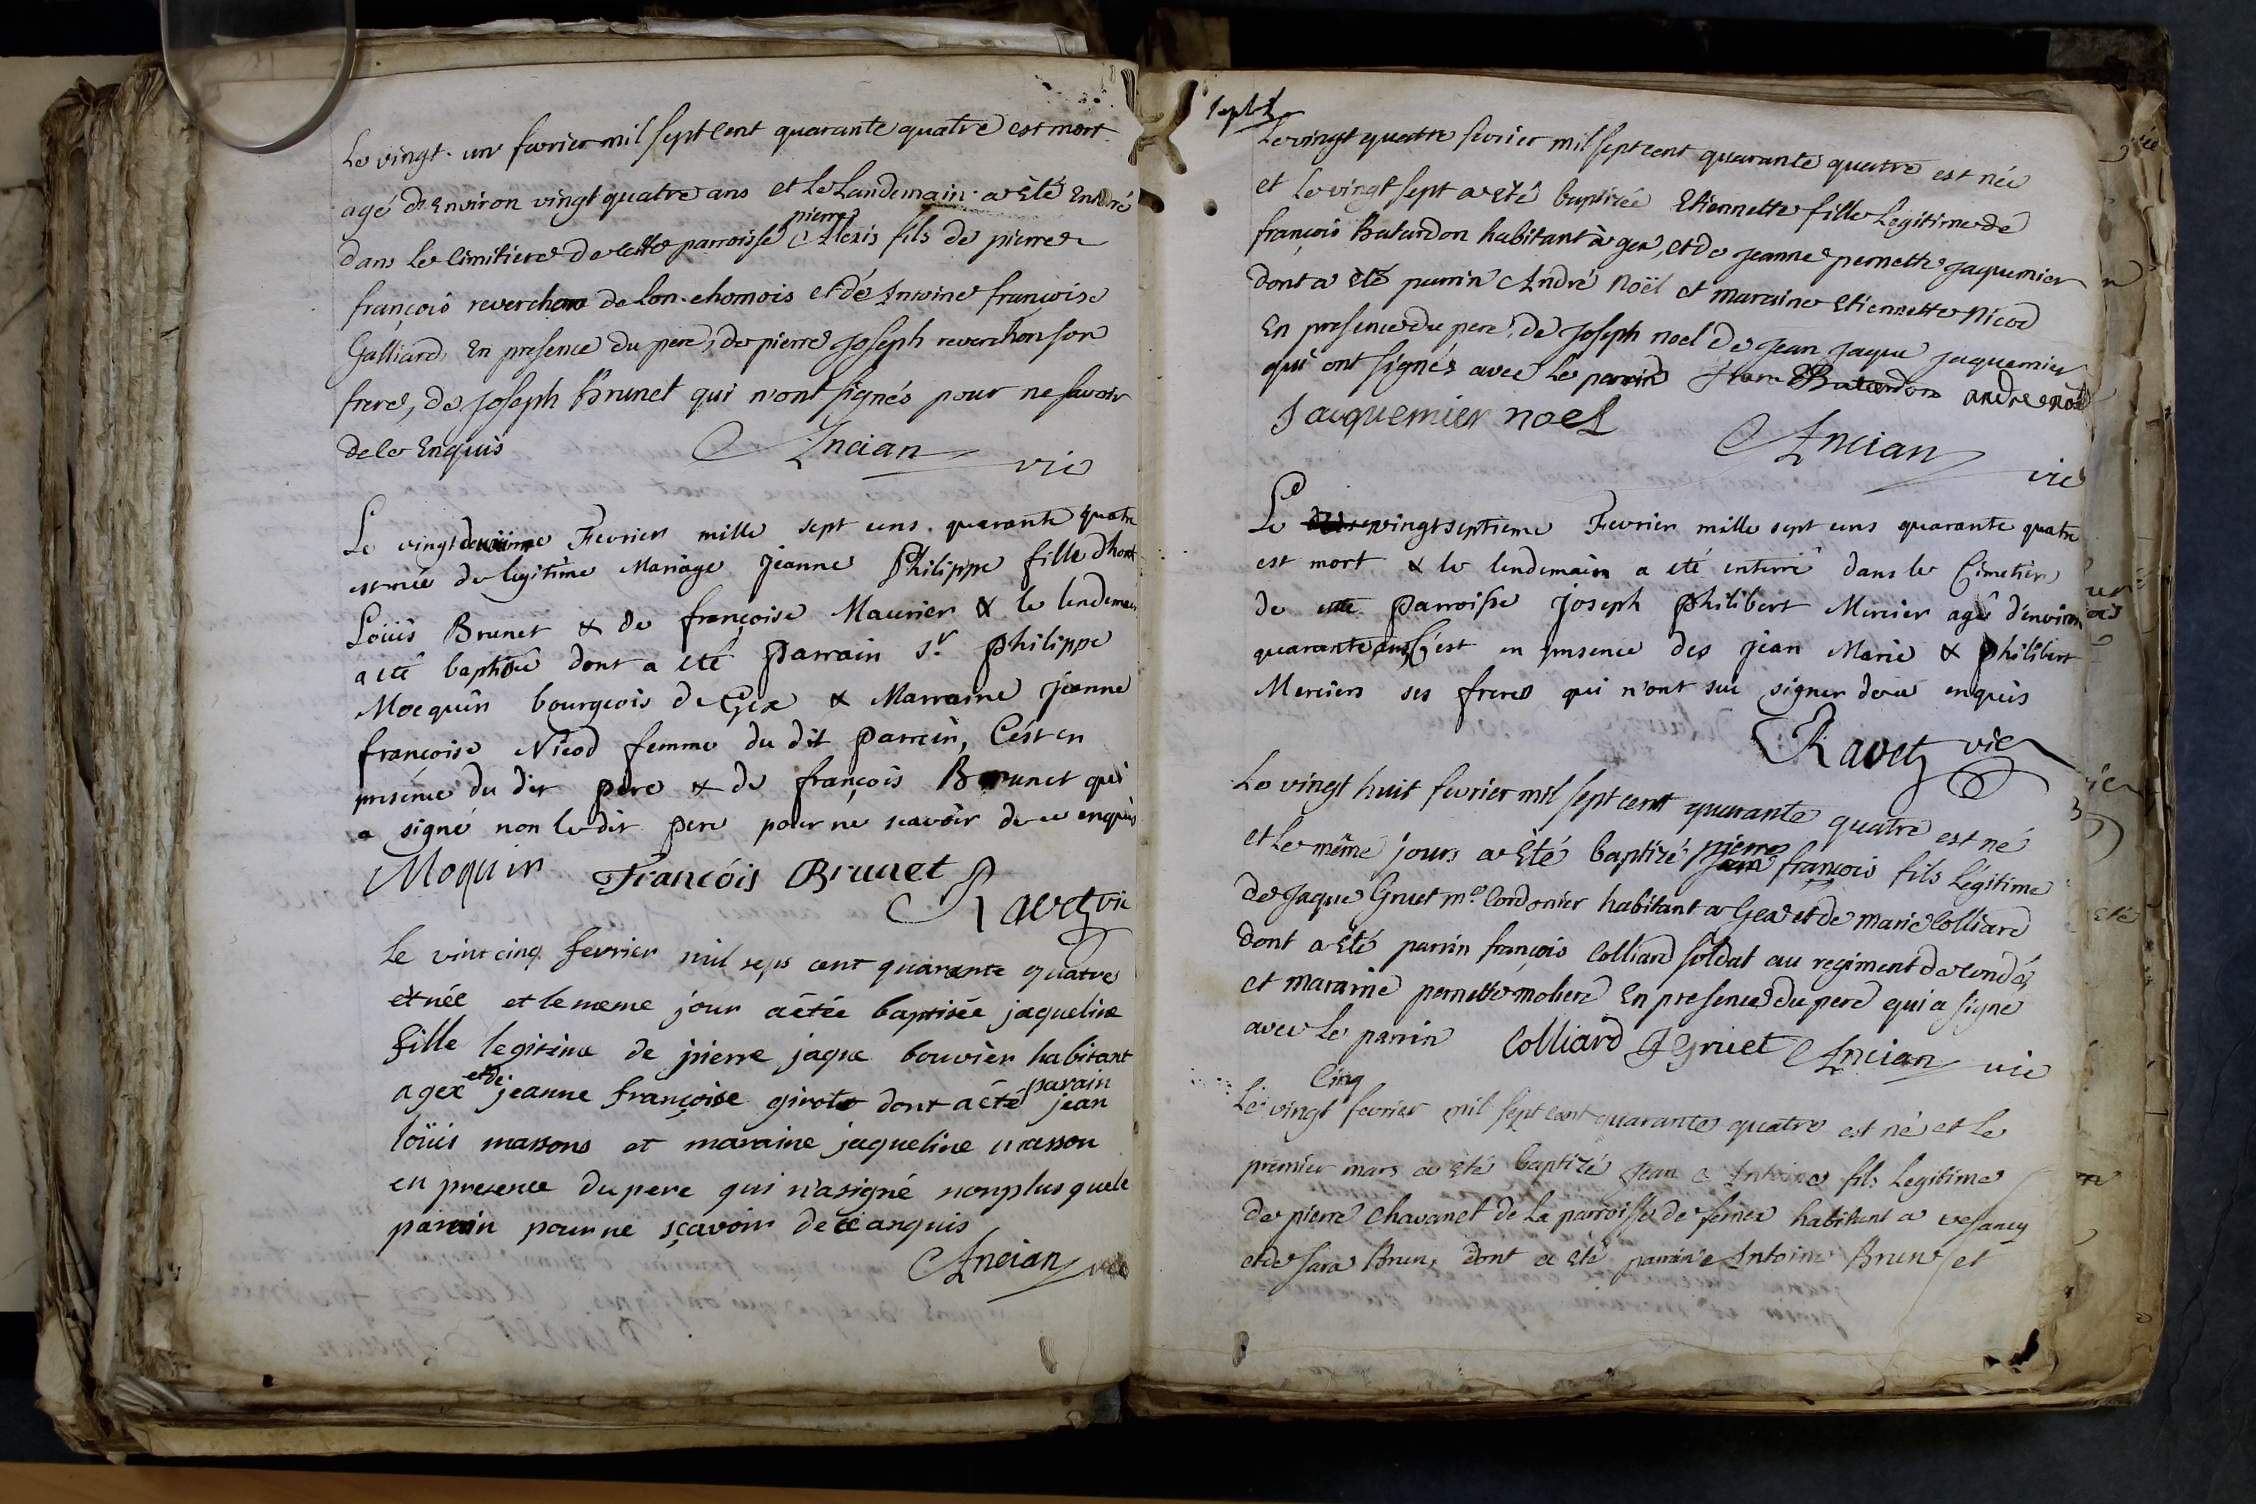 Le vingt-un fevrier mil sept cent quarante quatre est mort
agé d'environ vingt quatre ans et le Landemain a été Enterré
dans le Cimitiere de cette parroisse pierre Alexis fils de pierre
françois reverchon de Lon-chomois et de Antoine françoise
Galliard, En presence du pere, de pierre joseph reverchon son
frere, de joseph Brunet qui n'ont signés pour ne savoir
de ce Enquis Ancian vic
Le vingtdeuxieme Fevrier mille sept cens quarante quatre
est née de legitime Mariage Jeanne Philippe fille d'hont
Loüis Brunet & de françoise Maurier & le lendemain
a eté baptisée dont a eté Parrain Sr Philippe
Mocquin bourgeois de Gex & Marraine Jeanne
françoise Nicod femme du dit Parrein, C'est en
presence du dit Pere & de françois Brunet qui
a signé non le dit Pere pour ne scavoir de ce enquis
Moquin François Brunet Ravet vic
le vint cinq fevrier mil seps cent quarante quatre
et née et le meme jour aétée baptisée jaqueline
fille legitime de pierre jaque bouvier habitant
a gex et de jeanne françoise girots dont aété parain jean
loüis massons et maraine jaqueline masson
en presence du pere qui n'asigné nonplus quele
parain pour ne sçavoir de ce anquis
Ancian vic
sept
Le vingt quatre fevrier mil sept cent quarante quatre est née
et le vingt sept a eté baptizée Etiennette fille Legitime de
françois Batardon habitant à gex, et de jeanne pernette jaquemier
dont a eté parrin André Noël et maraine Etiennette Nicod
En presence du pere, de joseph noel de jean jaque jaquemier
qui ont signés avec le parrin Batardon andre noel
Jacquemier noel
Ancian vic
Le vingtseptieme Fevrier mille sept cens quarante quatre
est mort & le lendemain a eté enterré dans le Cimetiere
de cette Parroisse Joseph Philibert Mercier agé d'environ
quarante ans C'est en presence des Jean Marie & Philibert
Merciers ses freres qui n'ont sçu signer de ce enquis
Ravet vic
Le vingt huit fevrier mil sept cent quarante quatre est né
et le même jours a Eté baptizé pierre françois fils Légitime
de Jaque Gruet me Cordonier habitant a Gex et de marie Colliard
dont a Eté parrin françois Colliard soldat au regiment de condé,
et maraine pernette moliere En presence du pere qui a signe
avec le parrin Colliard J Gruet Ancian vic
Le vingt Cinq fevrier mil sept cent quarante quatre est né et Le
premier mars a été baptizé Jean Antoine fils Legitime
de pierre Chavanet de La parroisse de fernex habitant a vesancy
et de Sara Brun, dont a eté parrin Antoine Brun et